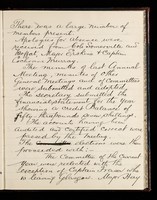 There was a large number of
members present.
Apologies for absence were
received from Cols Somerville and
Wyatt, Major Erskine & Captn
Cochrane Murray.
The minutes of last Annual
Meeting, minutes of other
General Meetings and of Committee
were submitted and adopted.
The Secretary submitted the
financial statement for the Year
showing a Credit Balance of
Fifty three pounds seven shillings.
The accounts having been
audited and certified correct were
passed by the meeting.
The elections were then
proceeded with:—
The Committee of the current
Year were reelected with the
exception of Captain
is leaving Glasgow. Major Gray